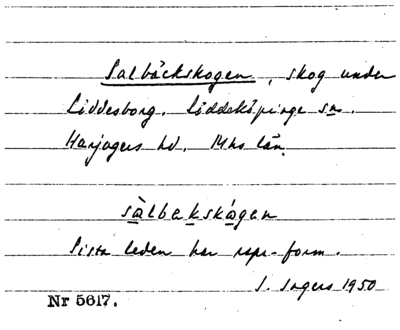 Salbäckskogen, skog under
Liddesborg. Löddeköpinge sn.
Harjagers hd. Mhs län.
sàlbakskågen
Sista leden har rspr-form.
S. Ingers 1950
Nr 5617.